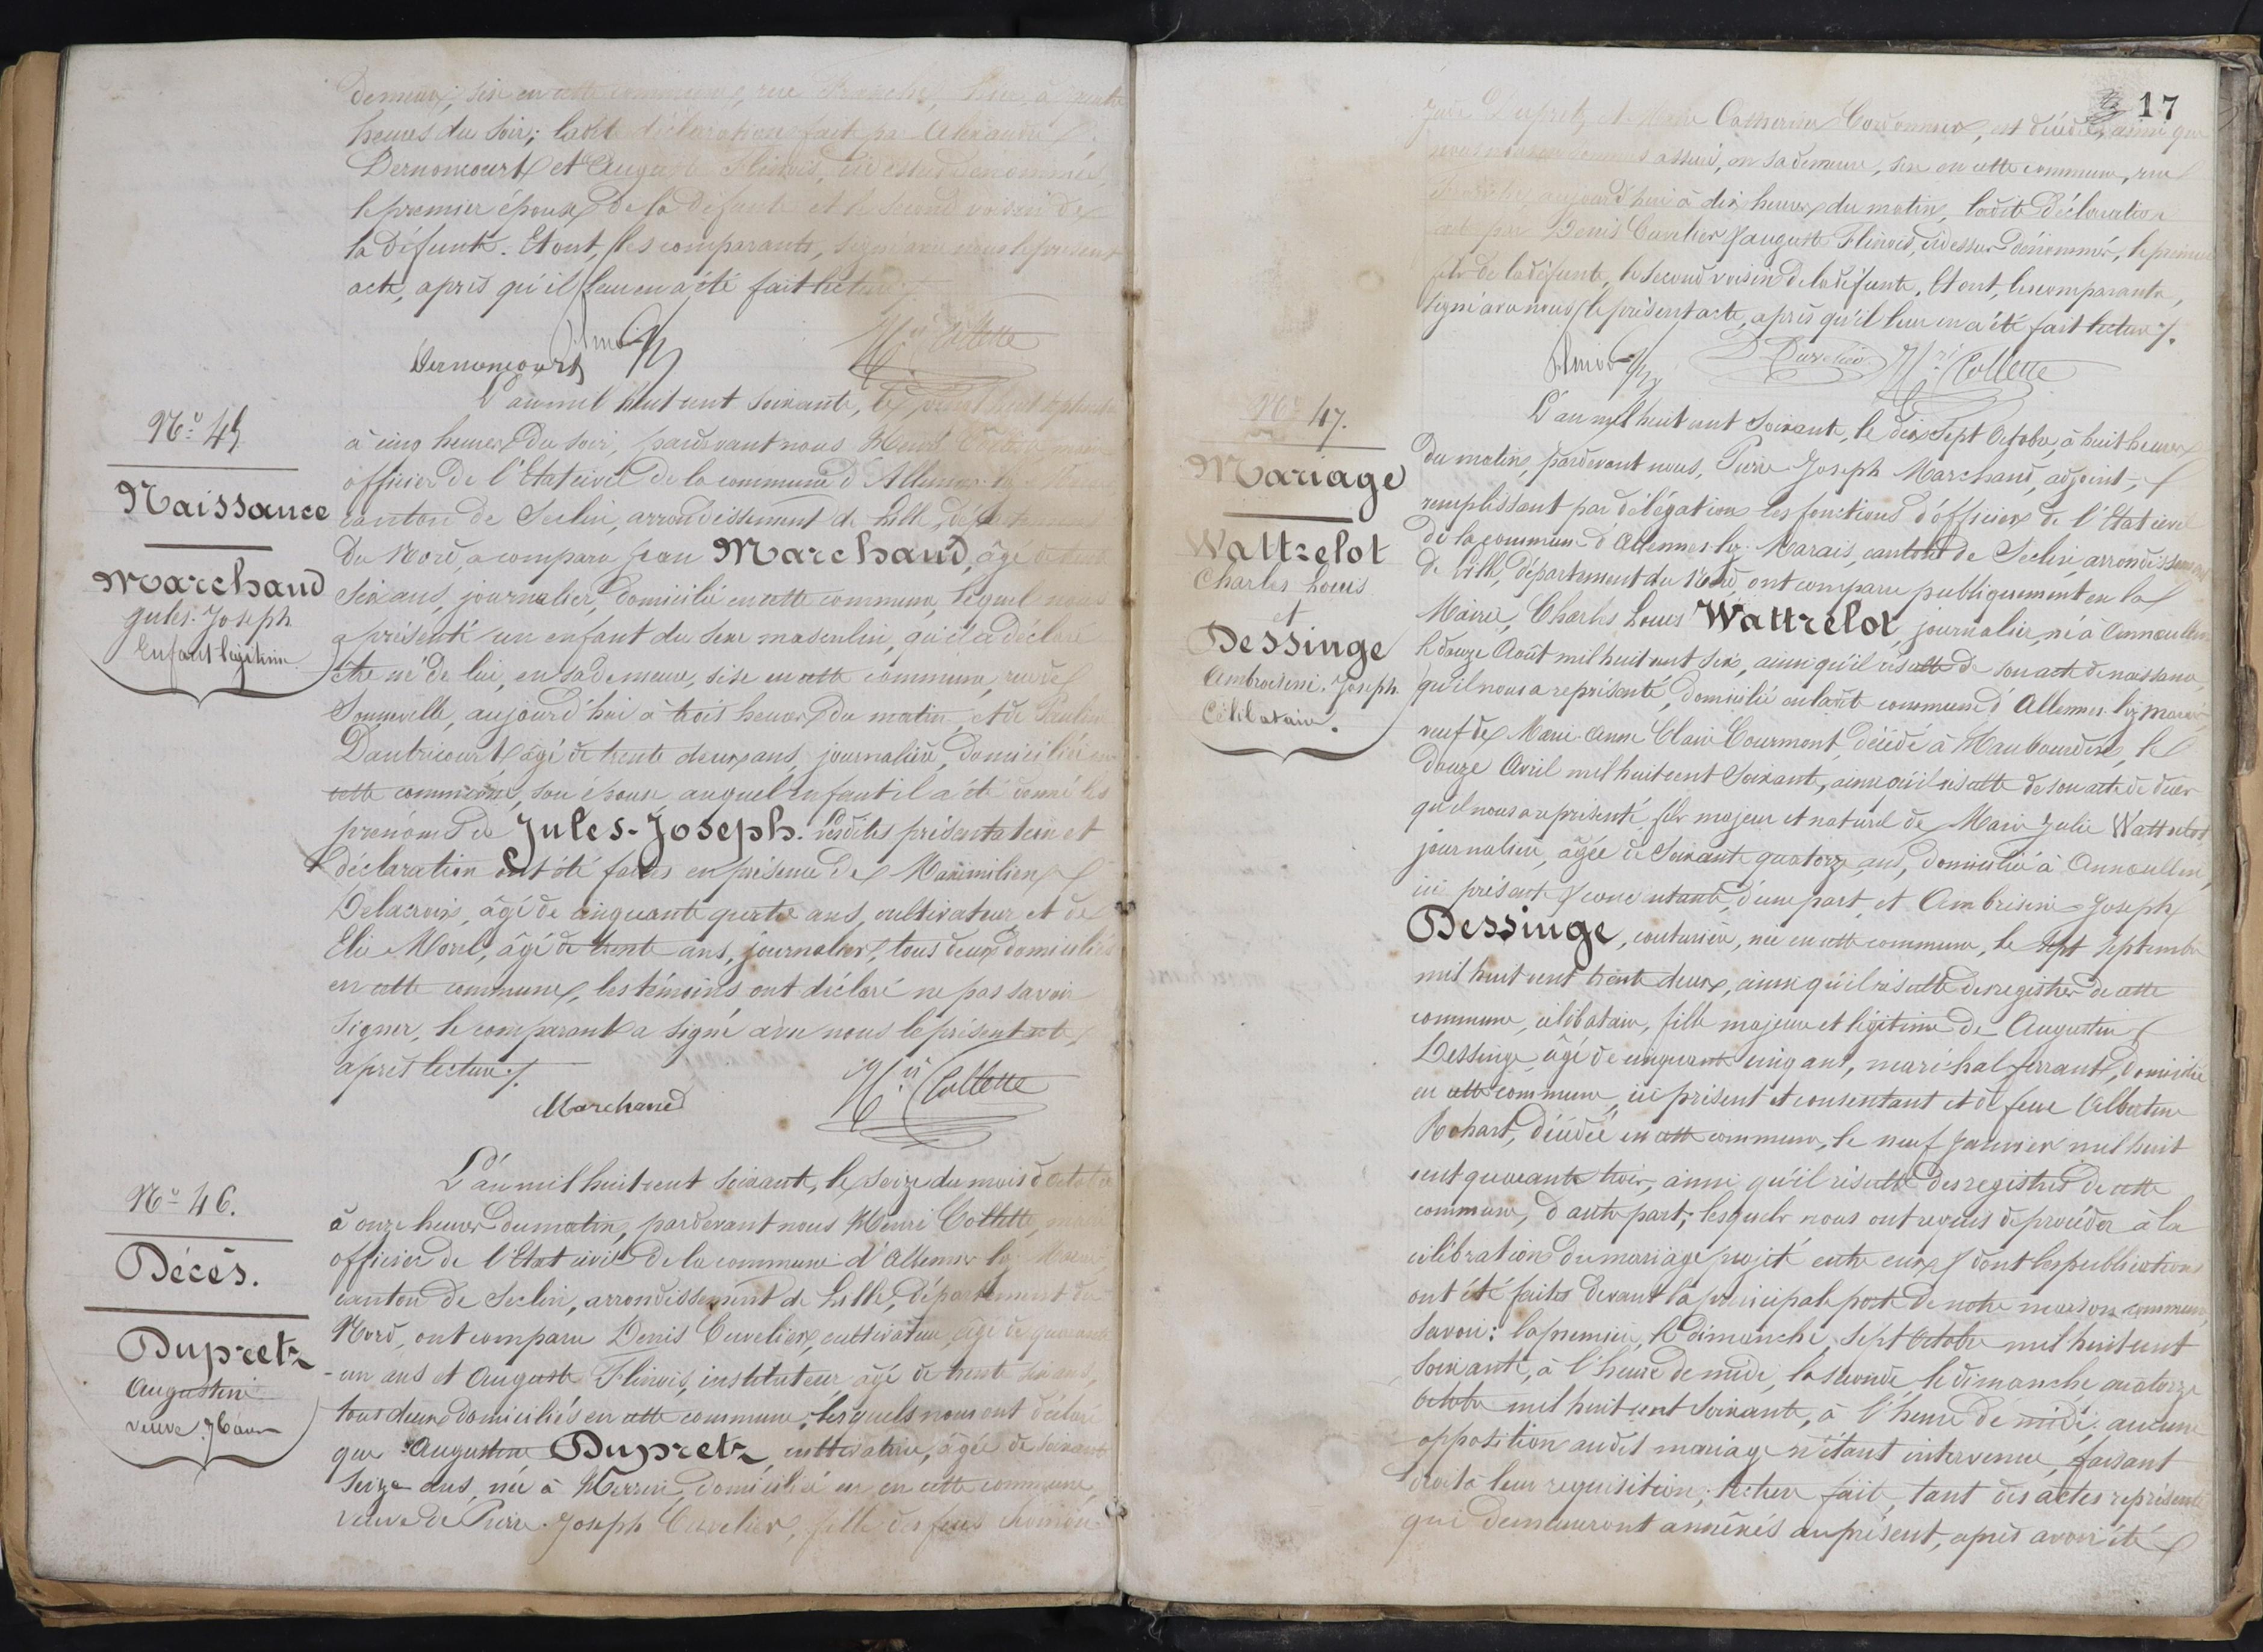 demeure, sise en cette commune, rue
heures du soir; ladite déclaration fait par Alexandre
Dernoncourt et Auguste Flinois, ci dessus dénommés,
le premier époux de la défunte et le second voisin de
la défunte. Et ont, les comparants, signé avec nous le présent
acte, après qu'il leur en a été fait lecture /.
Dernoncourt Flinois Hri Collette
N° 45
Naissance
Marchand
Jules-Joseph
Enfant légitime.
L'an mil huit cent soixante, le
à cinq heures du soir, pardevant nous Henri Collette, maire
officier de l'Etat civil de la commune d'Allennes-lez-Marais
canton de Seclin, arrondissement de Lille, département
du Nord, a comparu Jean Marchand, âgé de trente
six ans, journalier, domicilié en cette commune, lequel nous
a présenté un enfant du sexe masculin, qu'il a déclaré
être né de lui, en sa demeure, sise en cette commune, rue de
aujourd'hui à trois heures du matin, et de Pauline
Dautricourt âgé de trente deux ans, journalière, domiciliée en
cette commune, son épouse, auquel enfant il a été donné les
prénoms de Jules-Joseph. lesdites présentation et
déclaration ont été faites en présence de Maximilien
Delacroix, âgé de cinquante quatre ans, cultivateur et de
Elie Morel, âgé de trente ans, journalier, tous deux domiciliés
en cette commune, les témoins ont déclaré ne pas savoir
signer, le comparant a signé avec nous le présent acte,
après lecture /.
Marchand Hri Collette
N° 46.
Décès.
Dupretz
Augustine
veuve
L'an mil huit cent soixante, le seize du mois d'octobre
à onze heures du matin, pardevant nous Henri Collette, maire
officier de l'Etat civil de la commune d'Allennes-lez-Marais,
canton de Seclin, arrondissement de Lille, département du
Nord, ont comparu Denis Cuvelier, cultivateur, âgé de quarante
-un ans et Auguste Flinois, instituteur, âgé de trente six ans,
tous deux domiciliés en cette commune, lesquels nous ont déclaré
que Augustine Dupretz, cultivatrice, âgée de soixante
seize ans, née à Herrin, domiciliée en en cette commune,
veuve de Pierre-Joseph Cuvelier, fille des feus
17
Dupretz et Marie Catherine Cordonnier, est décédée, ainsi que
nous nous en sommes assuré, en sa demeure, sise en cette commune, rue
aujourd'hui à dix heures du matin, ladite déclaration
par Denis Cuvelier & Auguste Flinois, ci dessus dénommés, le premier
fils de la défunte, le second voisin de la défunte. Et ont, les comparants,
signé avec nous le présent acte, après qu'il leur en a été fait lecture /.
Flinois D Cuvelier Hri Collette
N° 47.
Mariage
Wattrelot
Charles Louis
et
Dessinge
Ambroisine-Joseph
Célibataire.
L'an mil huit cent soixante, le dix sept Octobre, à huit heures
du matin, pardevant nous, Pierre Joseph Marchand, adjoint,
remplissant par délégation les fonctions d'officier de l'Etat civil
de la commune d'Allennes-lez-Marais, canton de Seclin, arrondissement
de Lille, département du Nord, ont comparu publiquement en la
Mairie, Charles Louis Wattrelot, journalier, né à Annoeullin
le douze Août mil huit cent six, ainsi qu'il résulte de son acte de naissance,
qu'il nous a représenté, domicilié en ladite commune d'Allennes-lez-Marais,
veuf de Marie-Anne Claire Courmont, décédé à Haubourdin, le
douze Avril mil huit cent soixante, ainsi qu'il résulte de son acte de décès
qu'il nous a représenté, fils majeur et naturel de Marie Julie Wattrelot,
journalière, âgée de soixante quatorze ans, domiciliée à Annoeullin,
ici présente & consentante, d'une part, et Ambrisine Joseph
Dessinge, couturière, née en cette commune, le sept Septembre
mil huit cent trente deux, ainsi qu'il résulte des registres de cette
commune, célibataire, fille majeure et légitime de Augustin
Dessinge, âgé de cinquante cinq ans, maréchal ferrant, domicilié
en cette commune, ici présent et consentant et de feue Albertine
Rohart, décédée en cette commune, le neuf Janvier mil huit
cent quarante trois, ainsi qu'il résulte des registres de cette
commune, d'autre part; lesquels nous ont requis de procéder à la
célébration du mariage projeté entre eux & dont les publications
ont été faites devant la principale porte de notre maison commune,
savoir: la première, le dimanche, sept Octobre mil huit cent
soixante, à l'heure de midi, la seconde, le dimanche quatorze
Octobre mil huit cent soixante, à l'heure de midi, aucune
opposition audit mariage n'étant intervenue, faisant
droit à leur requisition; lecture faite, tant des actes représentés
qui demeureront annéxés au présent, après avoir été